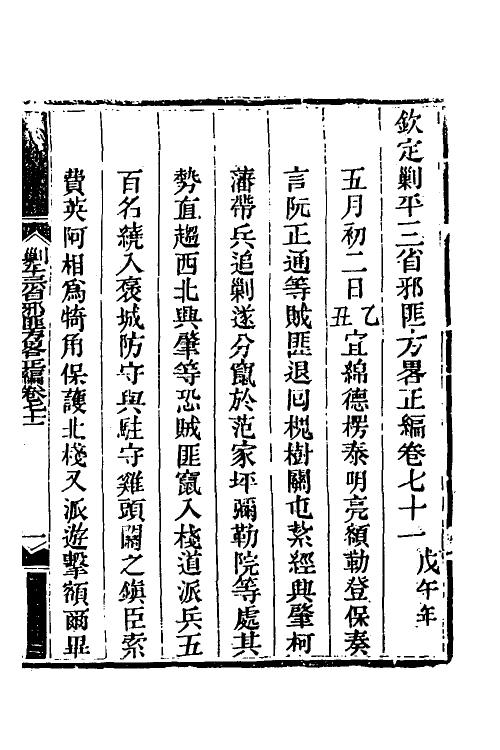 欽定剿平三省邪匪方畧正編卷七十一 戊午年
五月初二日乙丑宜綿德楞泰明亮額勒登保奏
言阮正通等賊匪退回槐樹關屯紮經興肇柯
藩帶兵追剿遂分竄於范家坪彌勒院等處其
勢直趨西北興肇等恐賊匪竄入棧道派兵五
百名繞入褒城防守與駐守雞頭關之鎮臣索
費英阿相為犄角保護北棧又派遊擊額爾畢
剿平三省邪匪方畧正編卷七十一
一